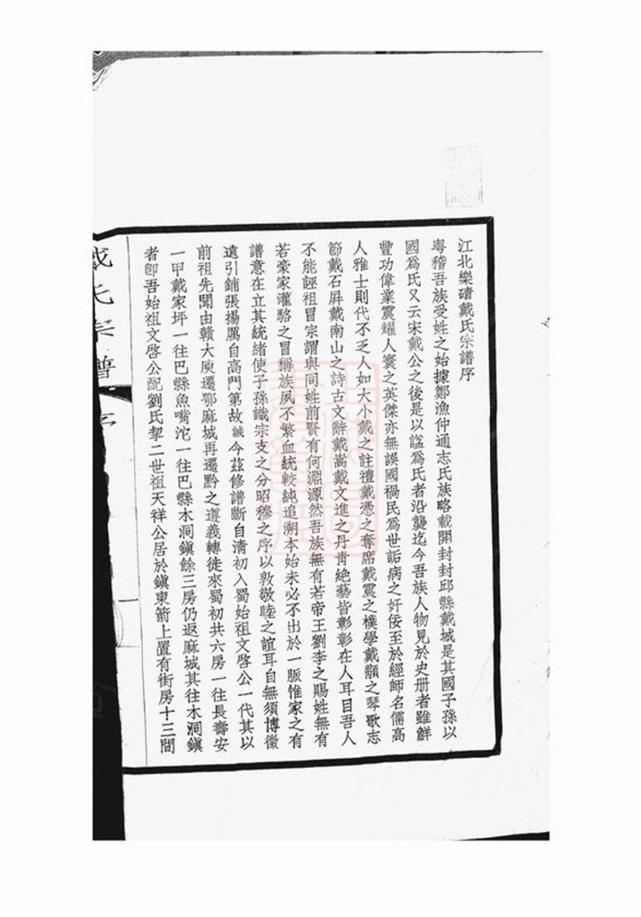 江北樂磧戴氏宗譜序
粵稽吾族受姓之始據鄭漁仲通志氏族略載開封封邱縣戴城是其國子孫以
國爲氏又云宋戴公之後是以諡爲氏者沿襲迄今吾族人物見於史册者雖鮮
豐功偉業震耀人寰之英傑亦無誤國禍民爲世詬病之奸佞至於經師名儒高
人雅士則代不乏人如大小戴之註禮戴憑之奪席戴震之樸學戴顒之琴歌志
節戴石屏戴南山之詩古文辭戴嵩戴文進之丹靑絶藝皆彰彰在人耳目吾人
不能誣祖冒宗謂與同姓前賢有何淵源然吾族無有若帝王劉李之賜姓無有
若豪家灌駱之冒稱族夙不繁血統較純追溯本始未必不出於一脈惟家之有
譜意在立其統緒使子孫識宗支之分昭穆之序以敦敬睦之誼耳自無須博徵
遠引鋪張揚厲自高門第故誠今茲修譜斷自清初入蜀始祖文啓公一代其以
前祖先聞由贛大庾遷鄂麻城再遷黔之遵義轉徙來蜀初共六房一往長壽安
一甲戴家坪一往巴縣魚嘴沱一往巴縣木洞鎭餘三房仍返麻城其往木洞鎭
者卽吾始祖文啓公配劉氏挈二世祖天祥公居於鎭東箭上置有街房十三間
戴氏宗譜 序